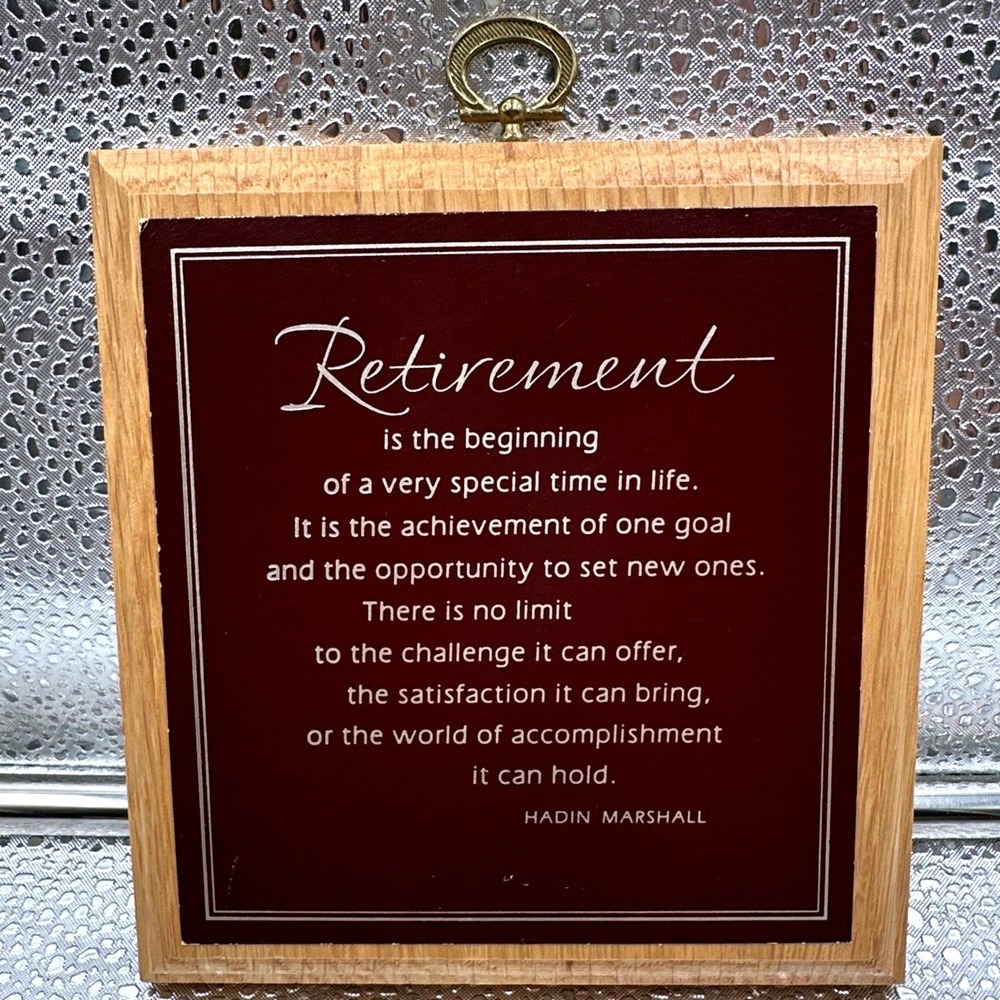 Retirement
is the beginning
of a very special time in life.
It is the achievement of one goal
and the opportunity to set new ones.
There is no limit
to the challenge it can offer,
the satisfaction it can bring,
or the world of accomplishment
it can hold.
HADIN MARSHALL